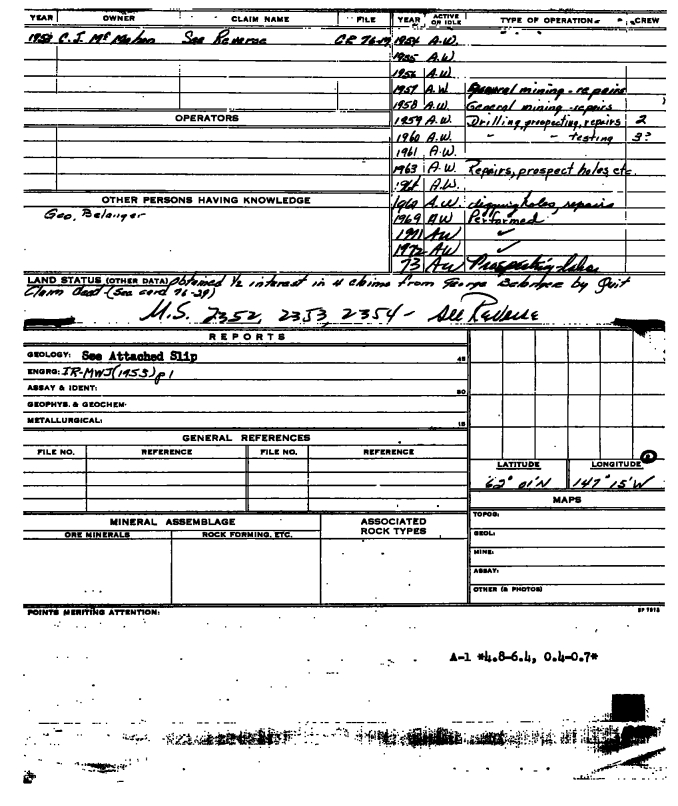 YEAR OWNER CLAIM NAME FILE YEAR ACTIVE OR IDLE TYPE OF OPERATION CREW
1953 C. I. McMahan See Reverse CR 76-19 1954 A.W.
1955 A.W.
1956 A.W.
1957 A.W. General mining - repairs
1958 A.W. General mining - repairs
OPERATORS 1959 A.W. Drilling, prospecting, repairs 2
1960 A.W. " - testing 3?
1961 A.W.
1963 A.W. Repairs, prospect holes etc
A.W.
OTHER PERSONS HAVING KNOWLEDGE A.W. digging holes, repairs
Geo. Belanger 1969 AW Performed
1971 AW ✓
1972 AW ✓
73 AW Prospecting holes
LAND STATUS (OTHER DATA) Obtained 1/2 interest in 4 claims from George Belanger by Quit
Claim deed - (See card 76-29)
M.S. 2352, 2353, 2354 - See Reverse
REPORTS
GEOLOGY: See Attached Slip 45
ENGRG: IR-MWJ (1953) p 1
ASSAY & IDENT: 50
GEOPHYS. & GEOCHEM:
METALLURGICAL: 15
GENERAL REFERENCES
FILE NO. REFERENCE FILE NO. REFERENCE
LATITUDE LONGITUDE
62° 01'N 147° 15'W
MAPS
TOPOG:
MINERAL ASSEMBLAGE ASSOCIATED ROCK TYPES
ORE MINERALS ROCK FORMING, ETC.
GEOL:
MINE:
ASSAY:
OTHER (& PHOTOS)
POINTS MERITING ATTENTION: SP 7813
A-1 *4.8-6.4, 0.4-0.7*